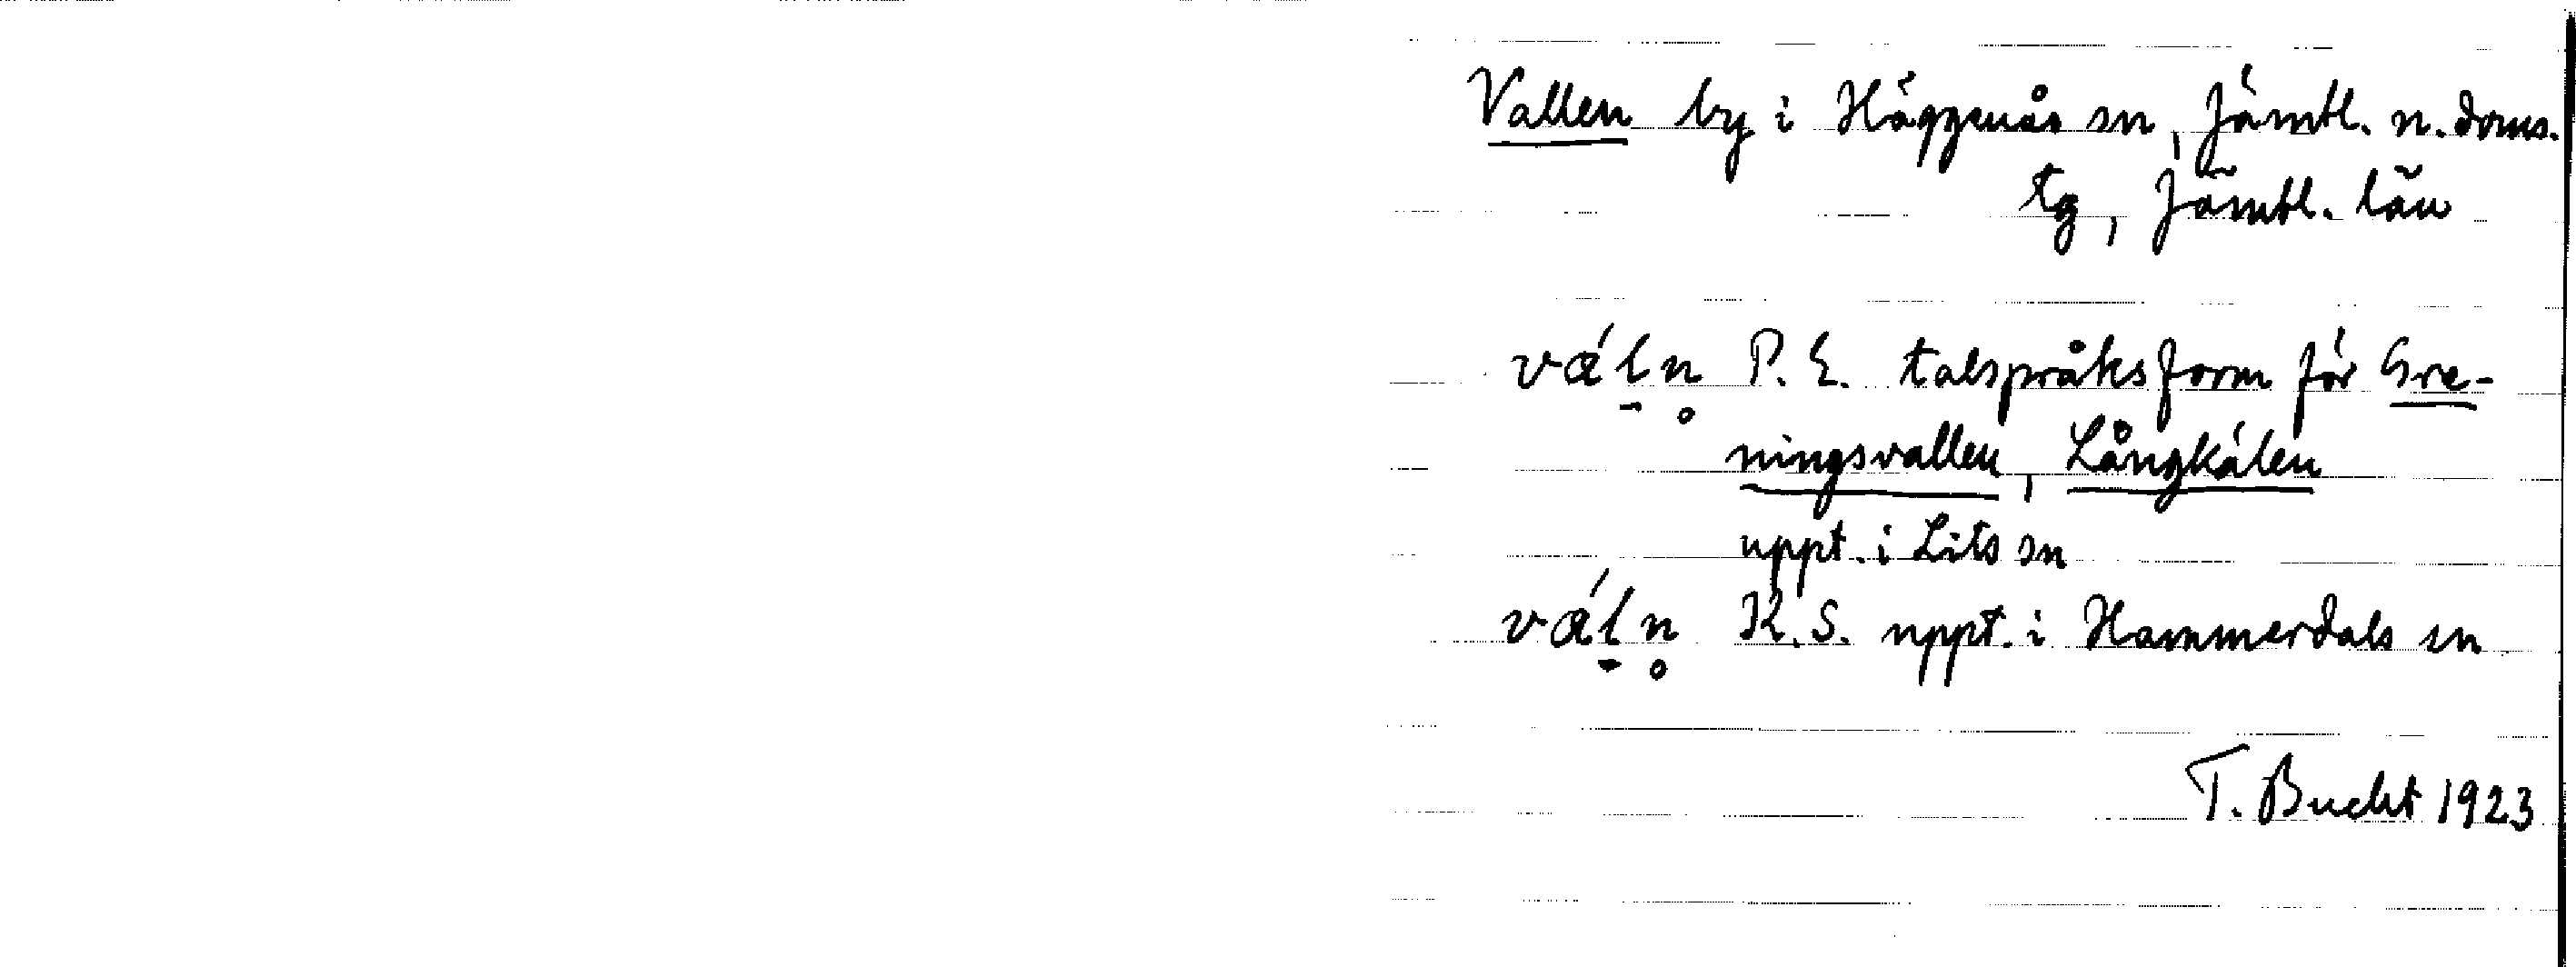 Vallen by i Häggenås sn, Jämtl. n. doms.
tg, Jämtl. län
váḻn̥ P. E. talspråksform för Gre-
ningsvallen, Långkälen
uppt. i Lits sn
váḻn̥ K. S. uppt. i Hammerdals sn
T. Bucht 1923